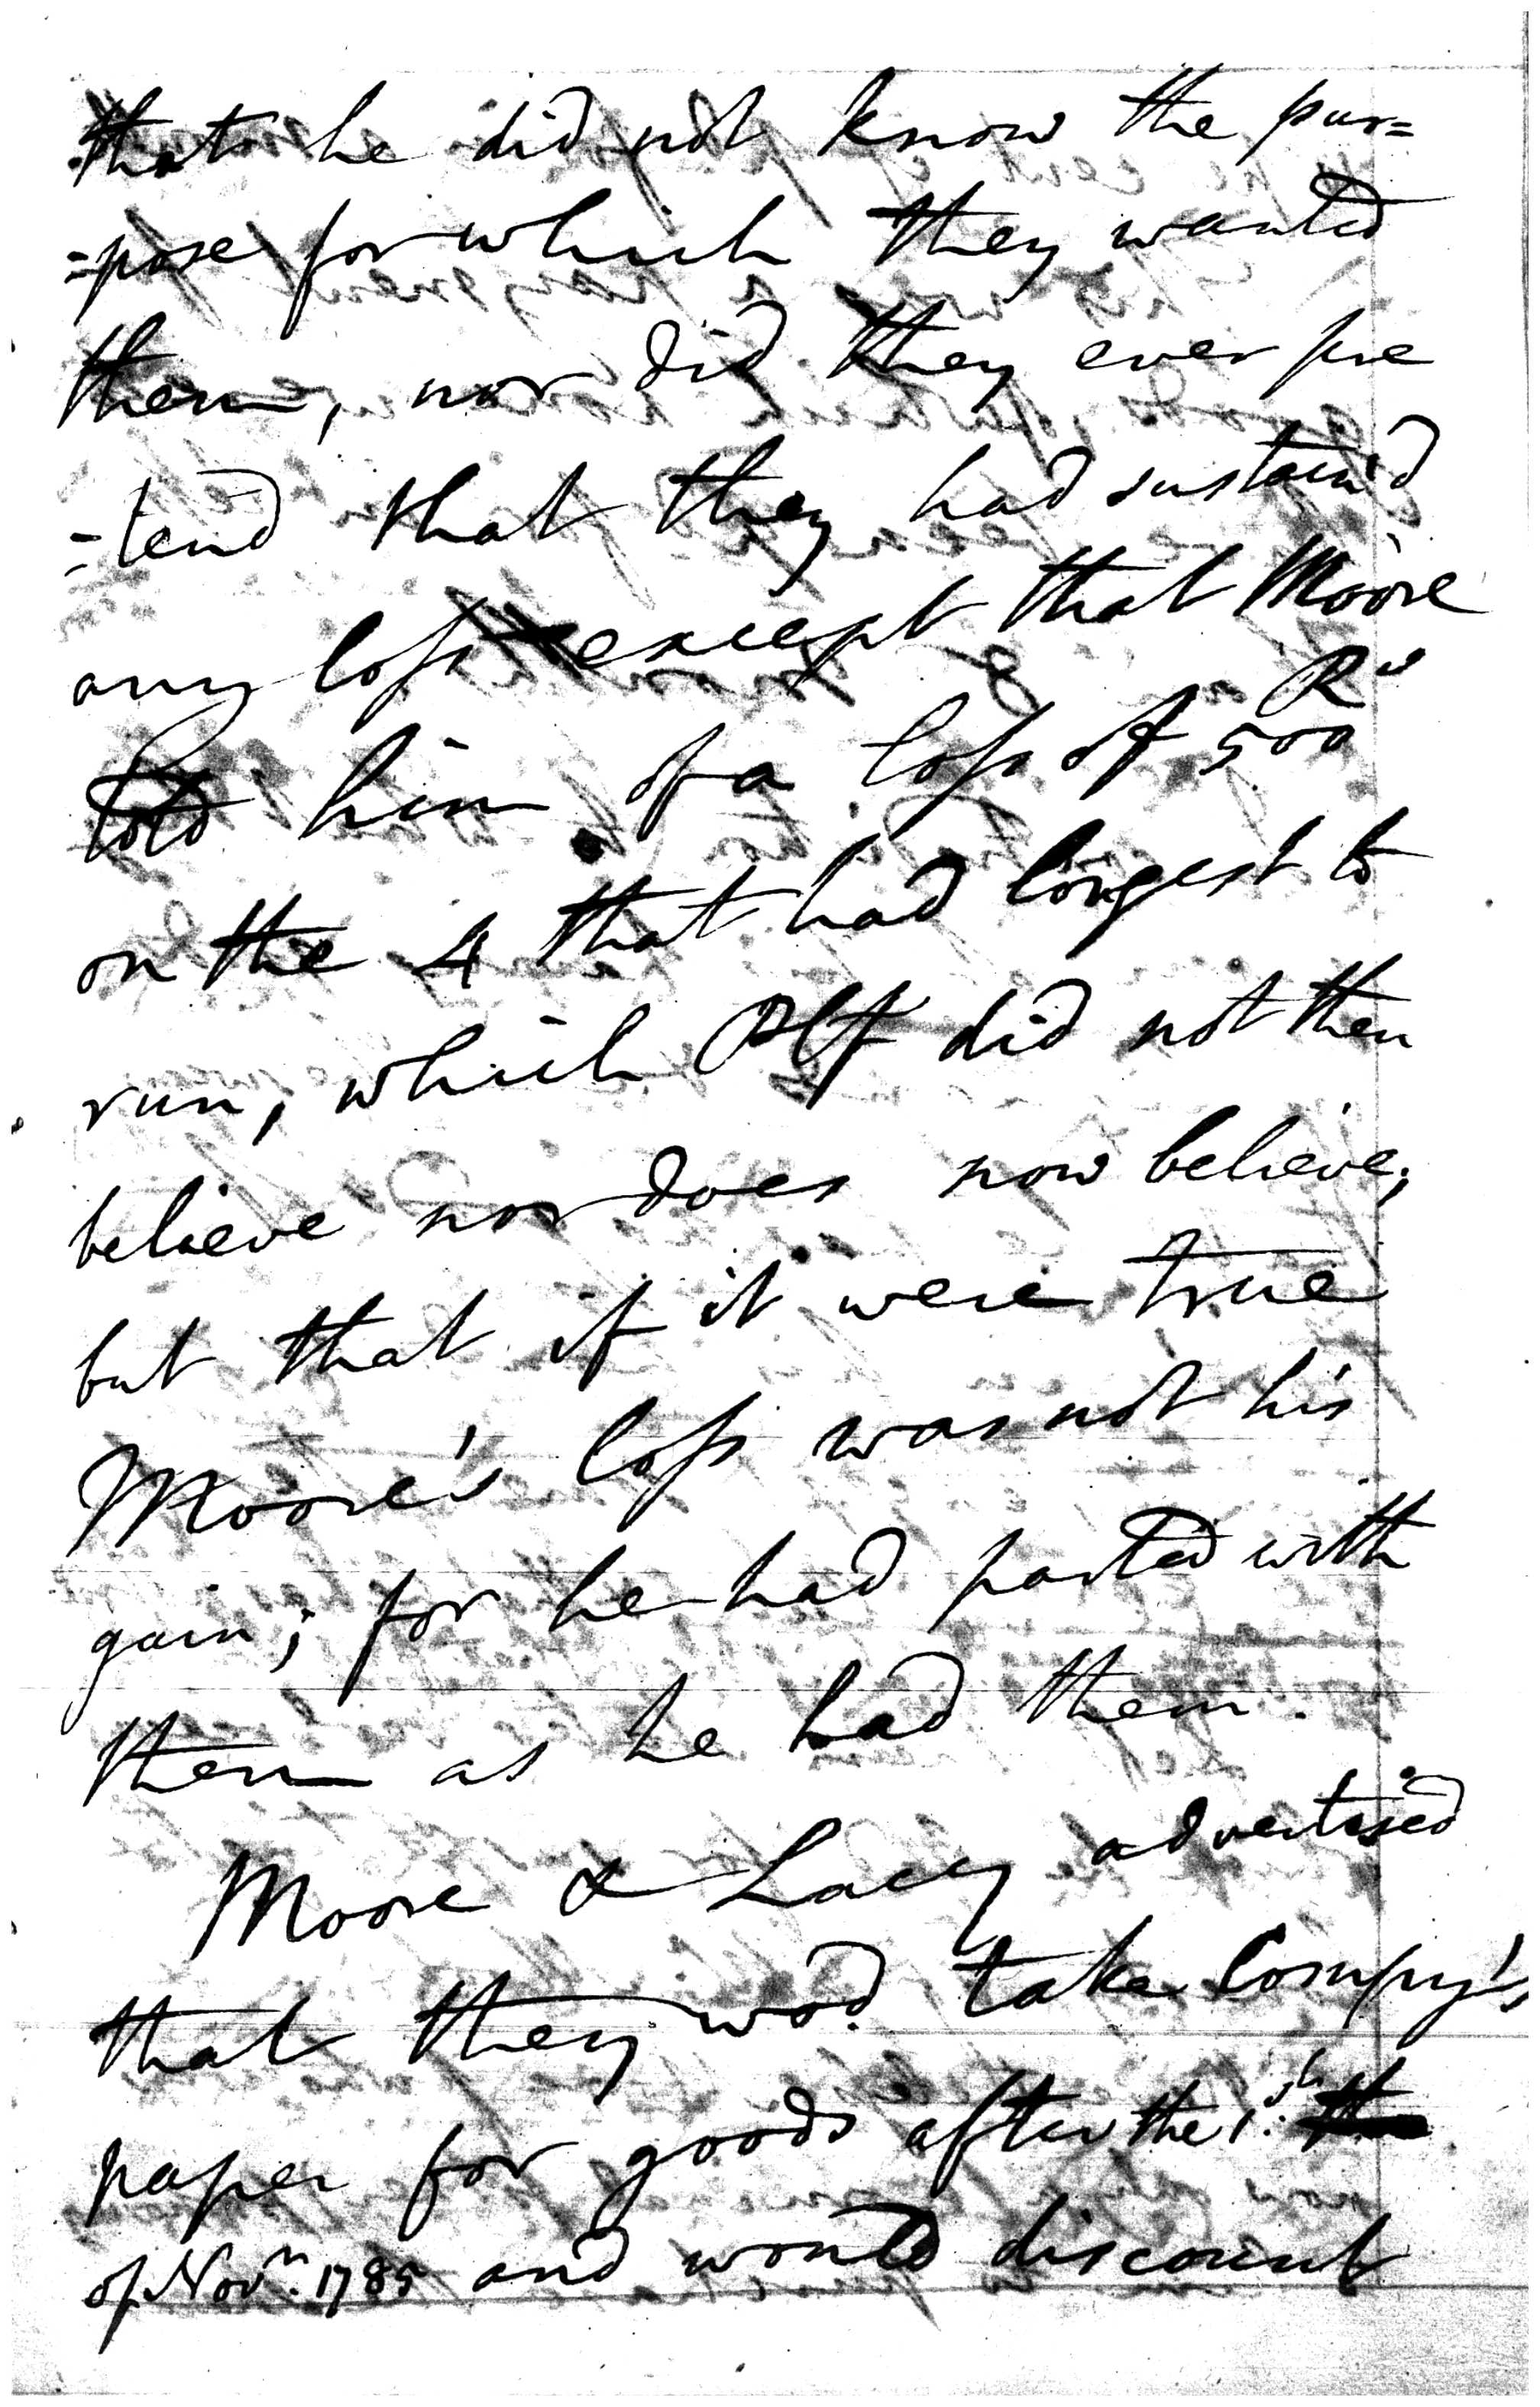 that he did not know the pur=
=pose for which they wanted
them, nor did they ever pre
=tend that they had sustain'd
any loss except that Moore
told him of a loss of 500 Rs
on the 4 that had longest to
run, which Plf did not then
believe nor does now believe;
but that if it were true
Moore's loss was not his
gain; for he had parted with
them as he had them.
Moore & Lacey advertised
that they wod. take Compy's
paper for goods after the 1st.
of Novr. 1785 and would discount